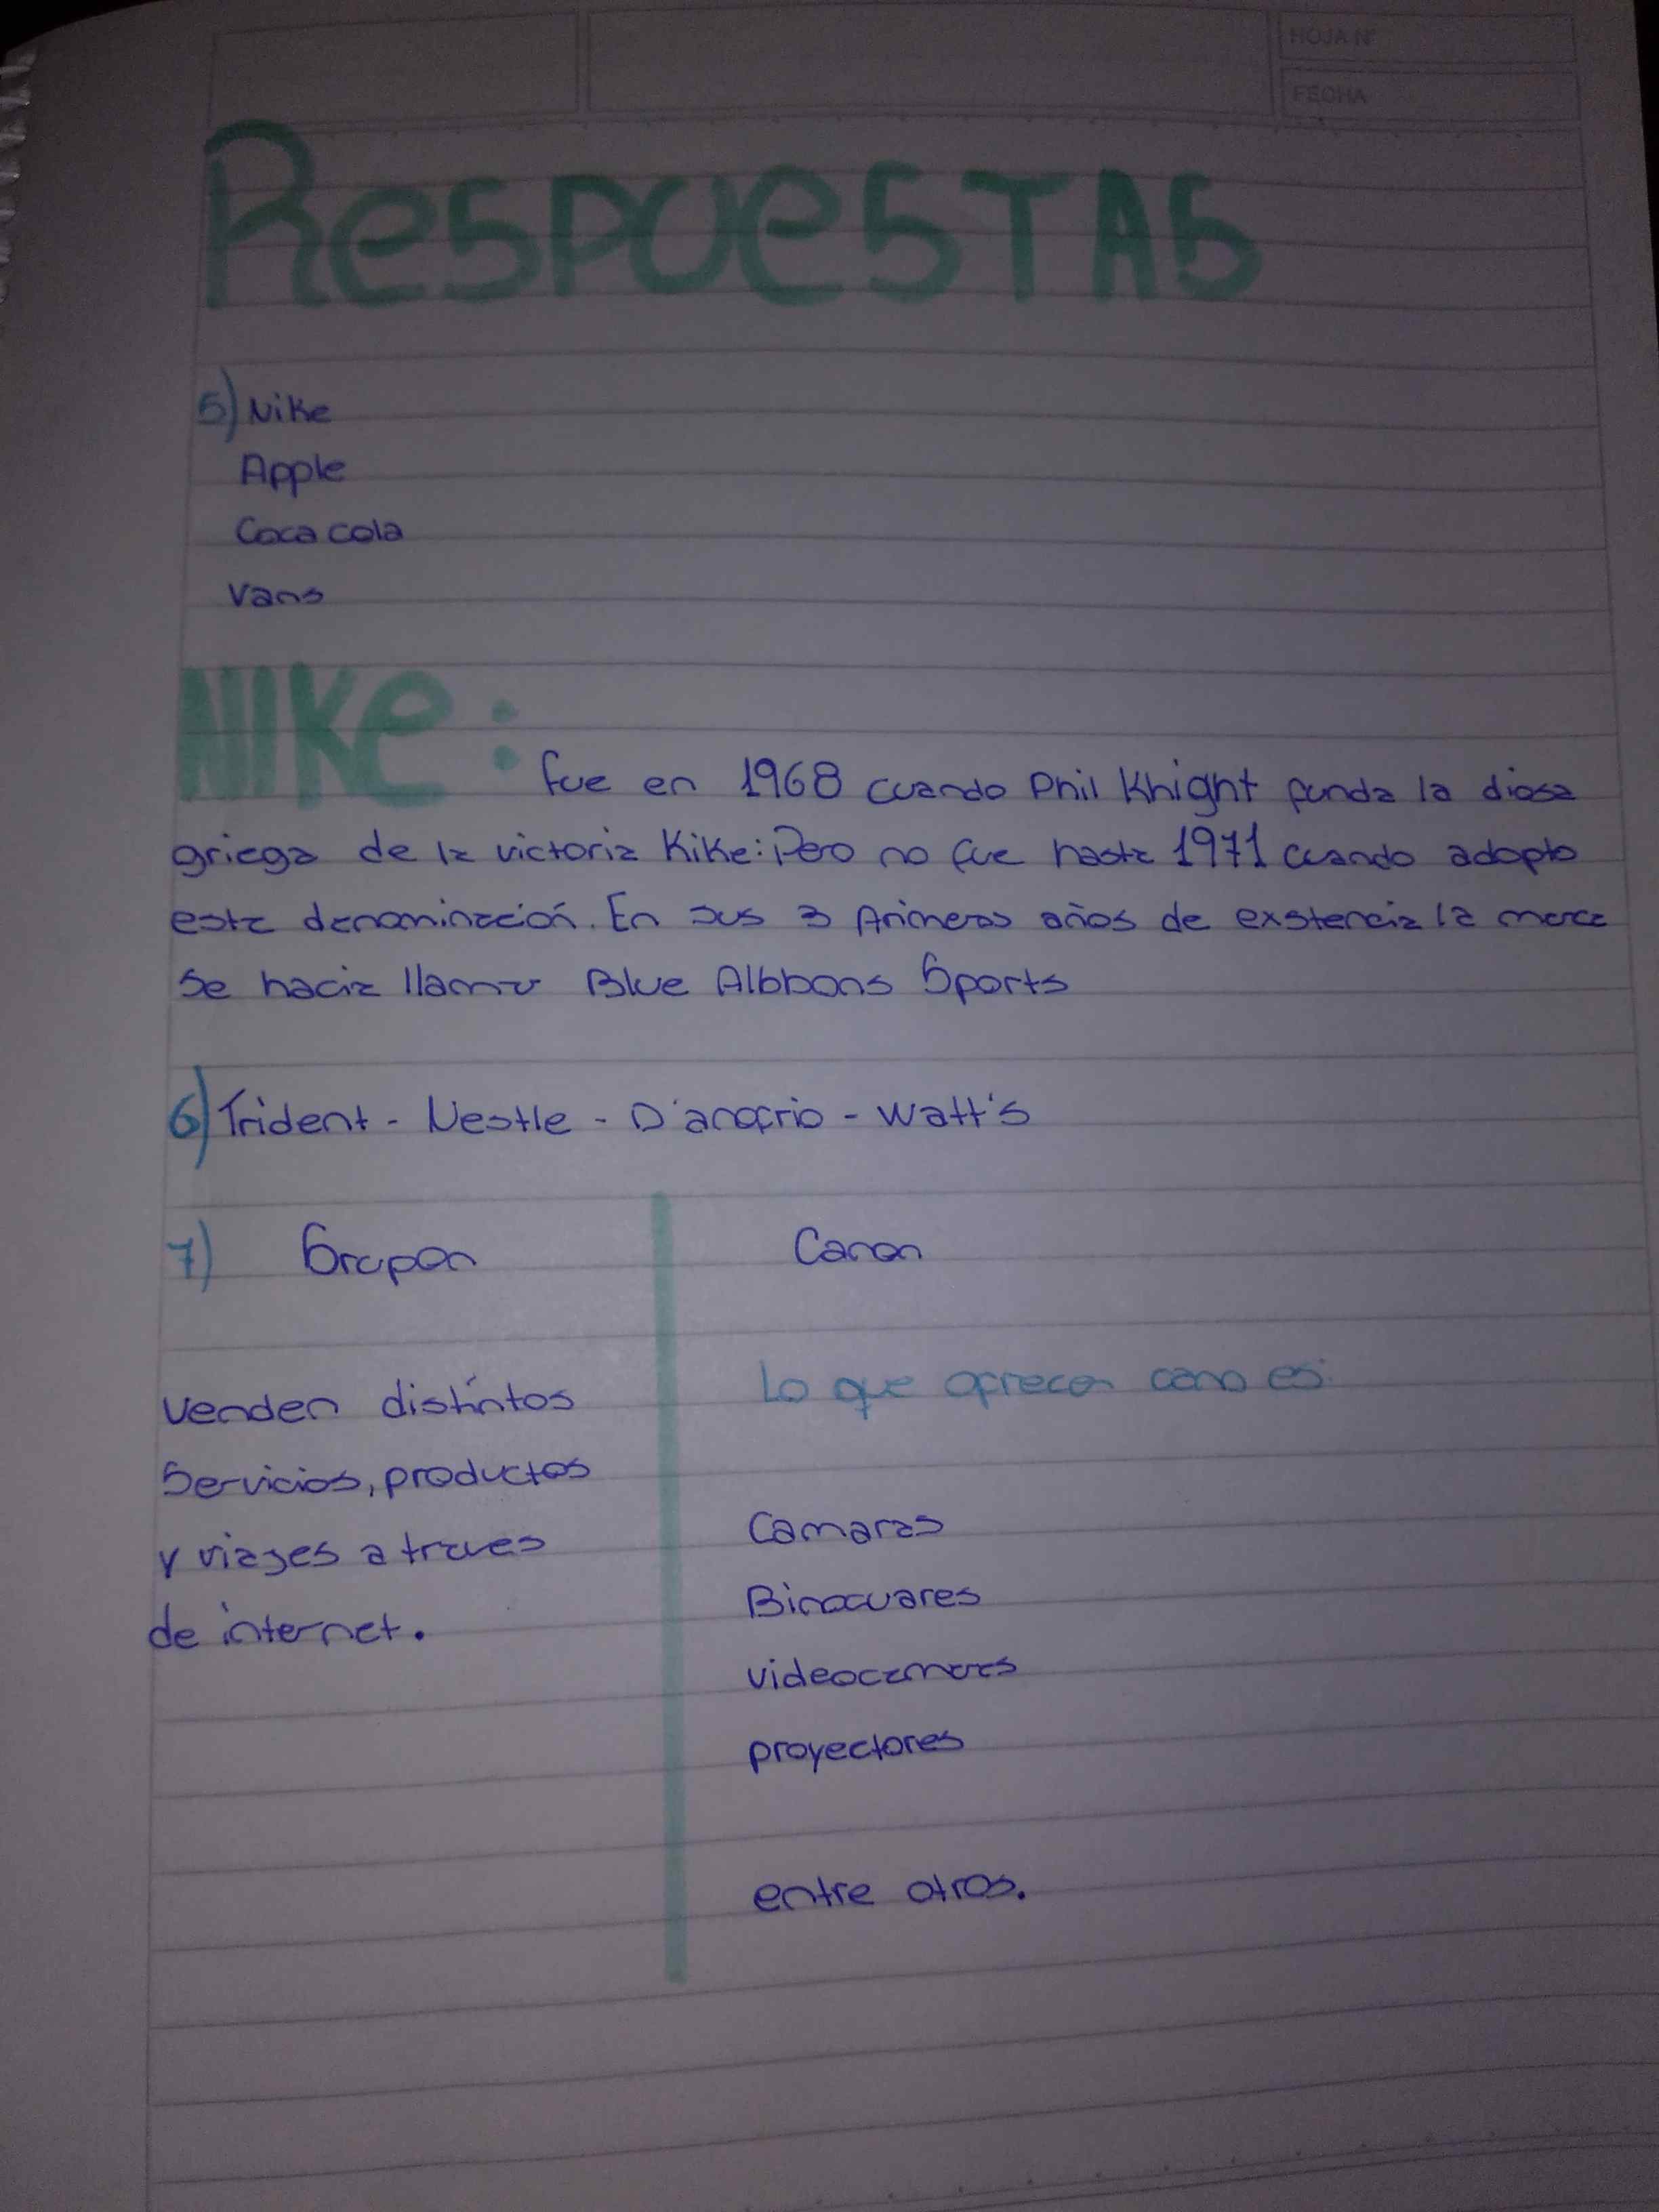 HOJA N°
FECHA
ResPUesTAS
5) Nike
Apple
Coca cola
Vans
NIKe:
fue en 1968 cuando Phil Khight funda la diosa
griega de la victoria Kike: Pero no fue hasta 1971 cuando adopto
esta denominación. En sus 3 primeros años de existencia la marca
se hacia llamar Blue Albbons Sports
6) Trident - Nestle - D'anofrio - Watt's
7) Grupon
Canon
venden distintos
servicios, productos
y viajes a traves
de internet.
Lo que ofrecen como es:
Camaras
Binocuares
videocamaras
proyectores
entre otros.